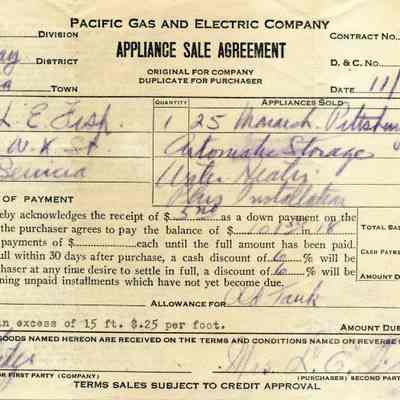 PACIFIC GAS AND ELECTRIC COMPANY
DIVISION
CONTRACT NO.
APPLIANCE SALE AGREEMENT
DISTRICT
D. & C. No.
ORIGINAL FOR COMPANY
DUPLICATE FOR PURCHASER
TOWN
DATE 11/
QUANTITY
APPLIANCES SOLD
L E Fish
1 25 Monarch Pittsburg
W. K St.
Automatic Storage
Benicia
Water Heater
Plus Installation
OF PAYMENT
eby acknowledges the receipt of $ 5 00 as a down payment on the
the purchaser agrees to pay the balance of $
TOTAL SALE
payments of $ each until the full amount has been paid.
CASH PAYME
full within 30 days after purchase, a cash discount of 6 % will be
chaser at any time desire to settle in full, a discount of 6 % will be
AMOUNT D
ning unpaid installments which not yet become due.
ALLOWANCE FOR Old Tank
n excess of 15 ft. $.25 per foot.
AMOUNT DUE
GOODS NAMED HEREON ARE RECEIVED ON THE TERMS AND CONDITIONS NAMED ON REVERSE
Mrs L E
FOR FIRST PARTY (COMPANY)
(PURCHASER) SECOND PART
TERMS SALES SUBJECT TO CREDIT APPROVAL